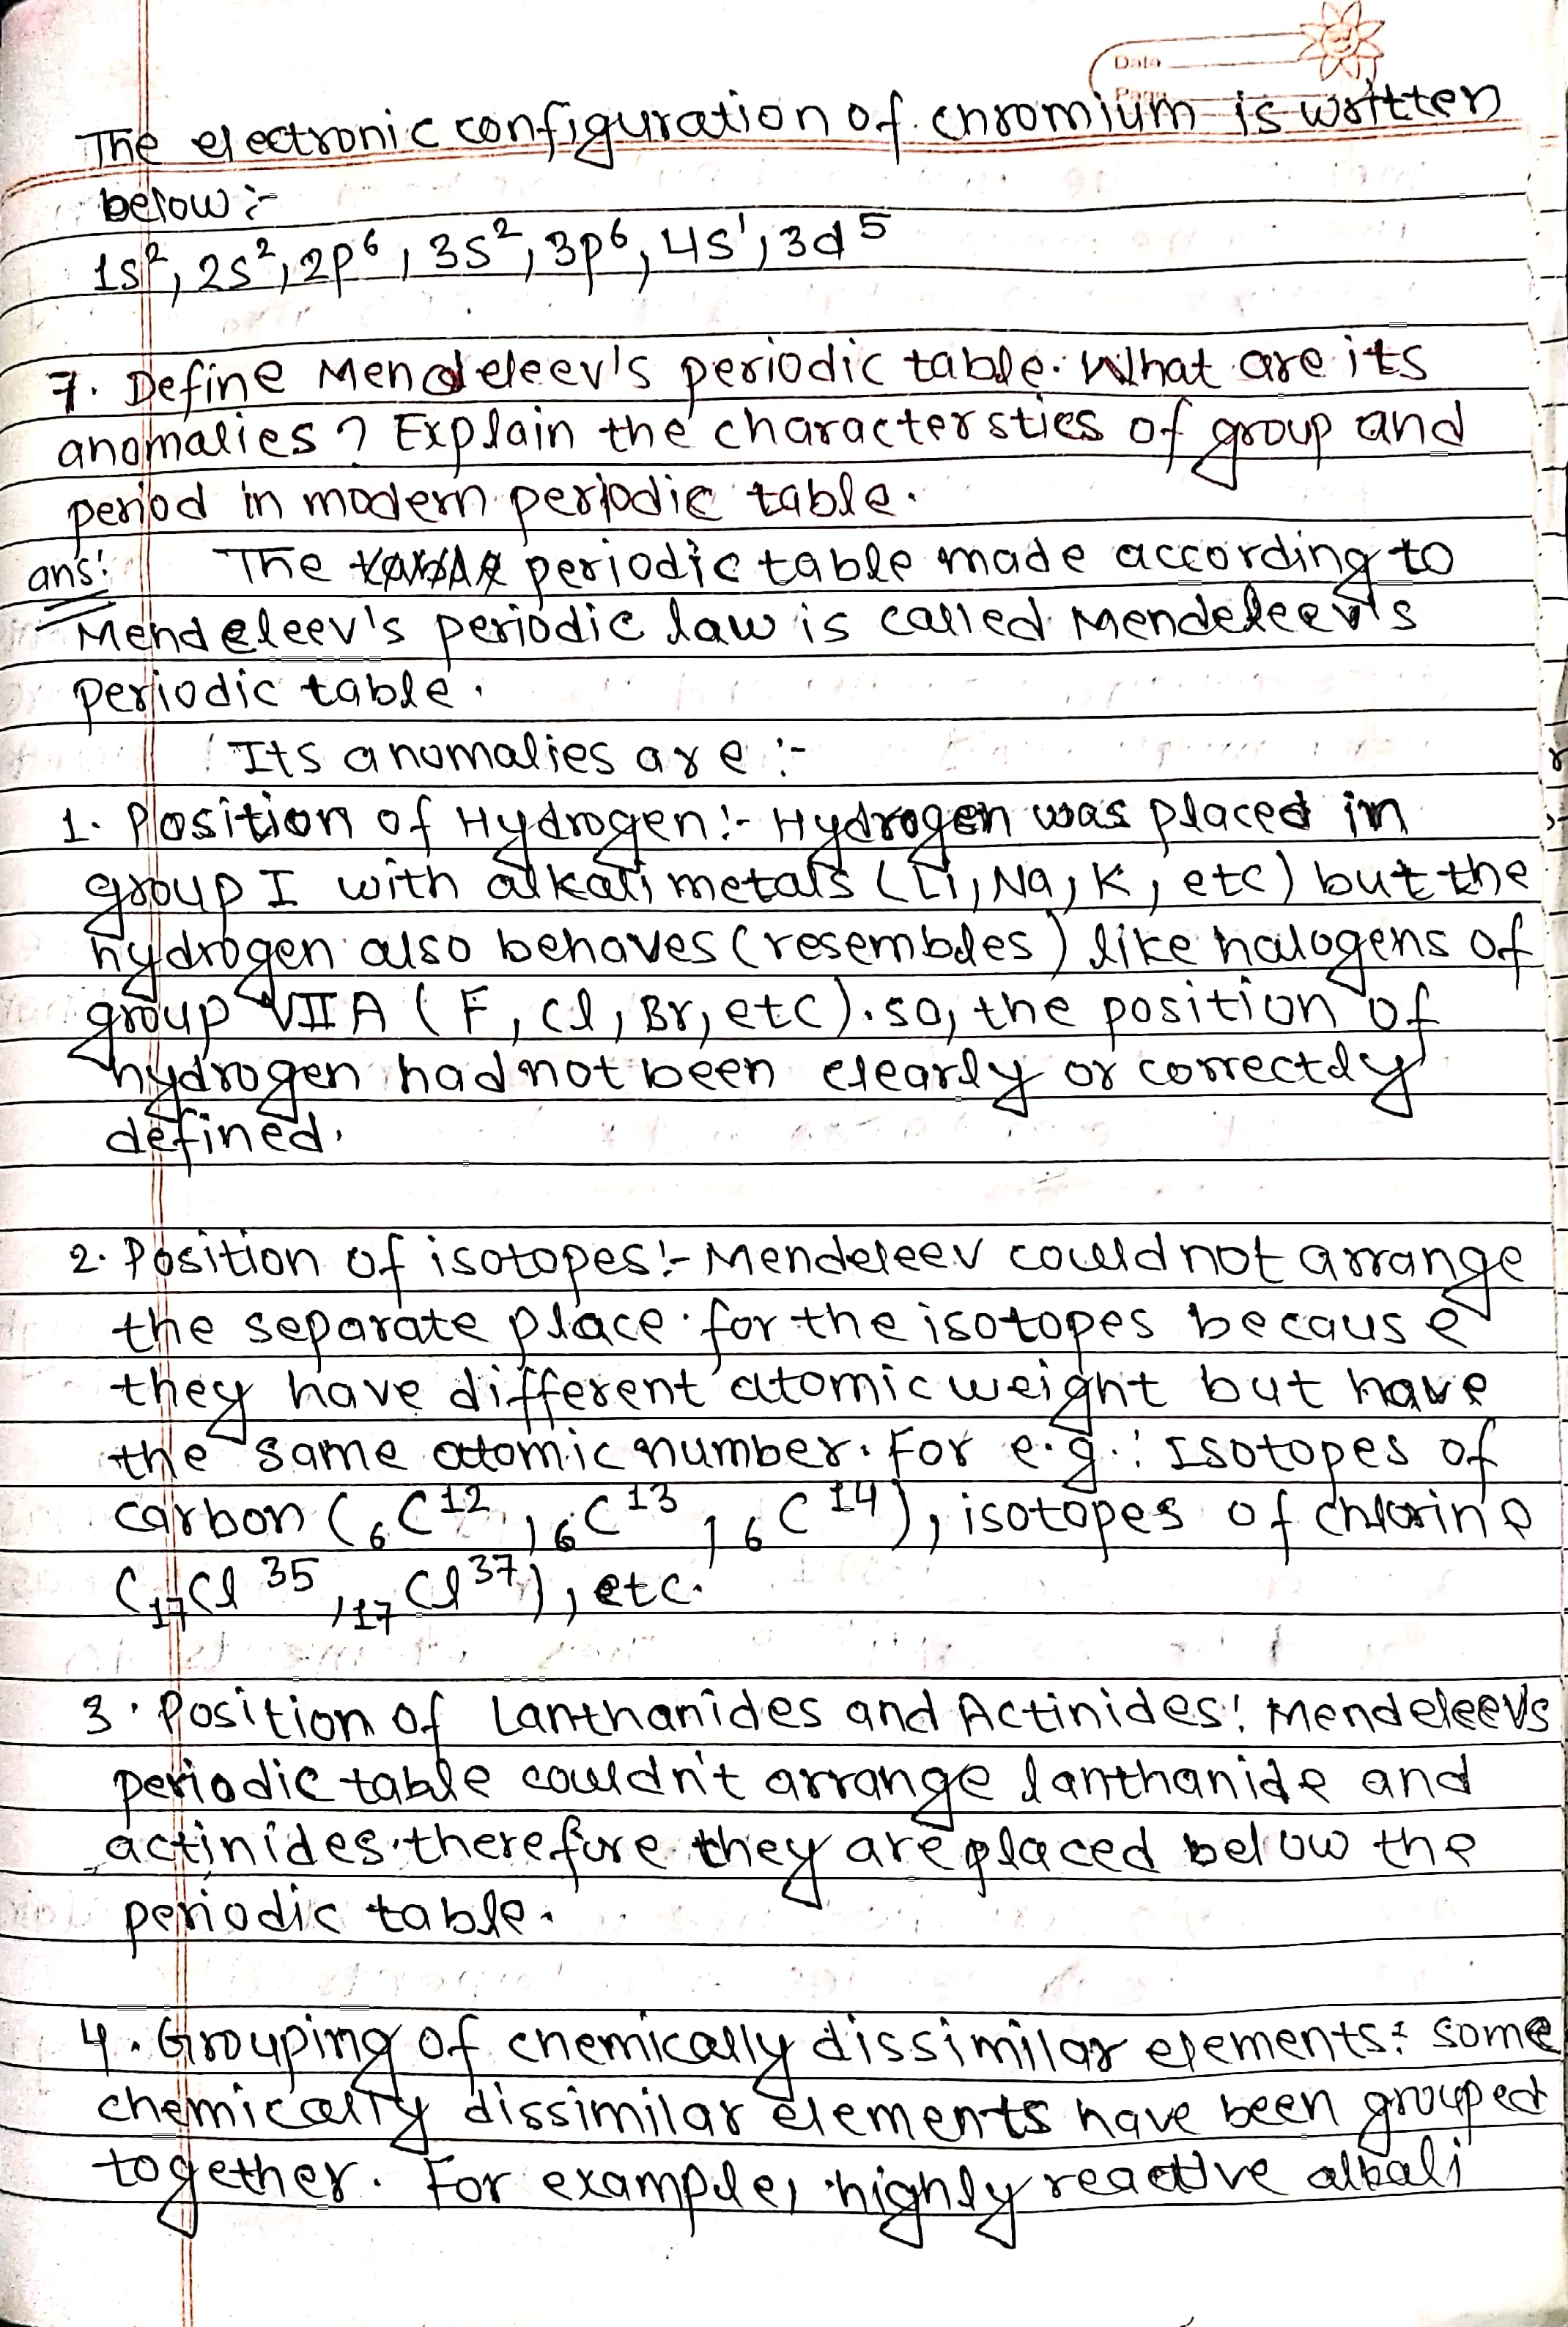 Date
Page
The electronic configuration of chromium is written
below :-
1s², 2s², 2p⁶, 3s², 3p⁶, 4s¹, 3d⁵
7. Define Mendeleev's periodic table. What are its
anomalies ? Explain the characterstics of group and
period in modern periodic table.
ans: The periodic table made according to
Mendeleev's periodic law is called Mendeleev's
periodic table.
Its anomalies are :-
1. Position of Hydrogen:- Hydrogen was placed in
group I with alkali metals (Li, Na, K, etc) but the
hydrogen also behaves (resembles) like halogens of
group VIIA (F, Cl, Br, etc). so, the position of
hydrogen had not been clearly or correctly
defined.
2. Position of isotopes:- Mendeleev could not arrange
the separate place for the isotopes because
they have different atomic weight but have
the same atomic number. For e.g.: Isotopes of
carbon (₆C¹², ₆C¹³, ₆C¹⁴), isotopes of chlorine
(₁₇Cl³⁵, ₁₇Cl³⁷), etc.
3. Position of Lanthanides and Actinides: Mendeleev's
periodic table couldn't arrange lanthanide and
actinides therefore they are placed below the
periodic table.
4. Grouping of chemically dissimilar elements: some
chemically dissimilar elements have been grouped
together. For example, highly reactive alkali